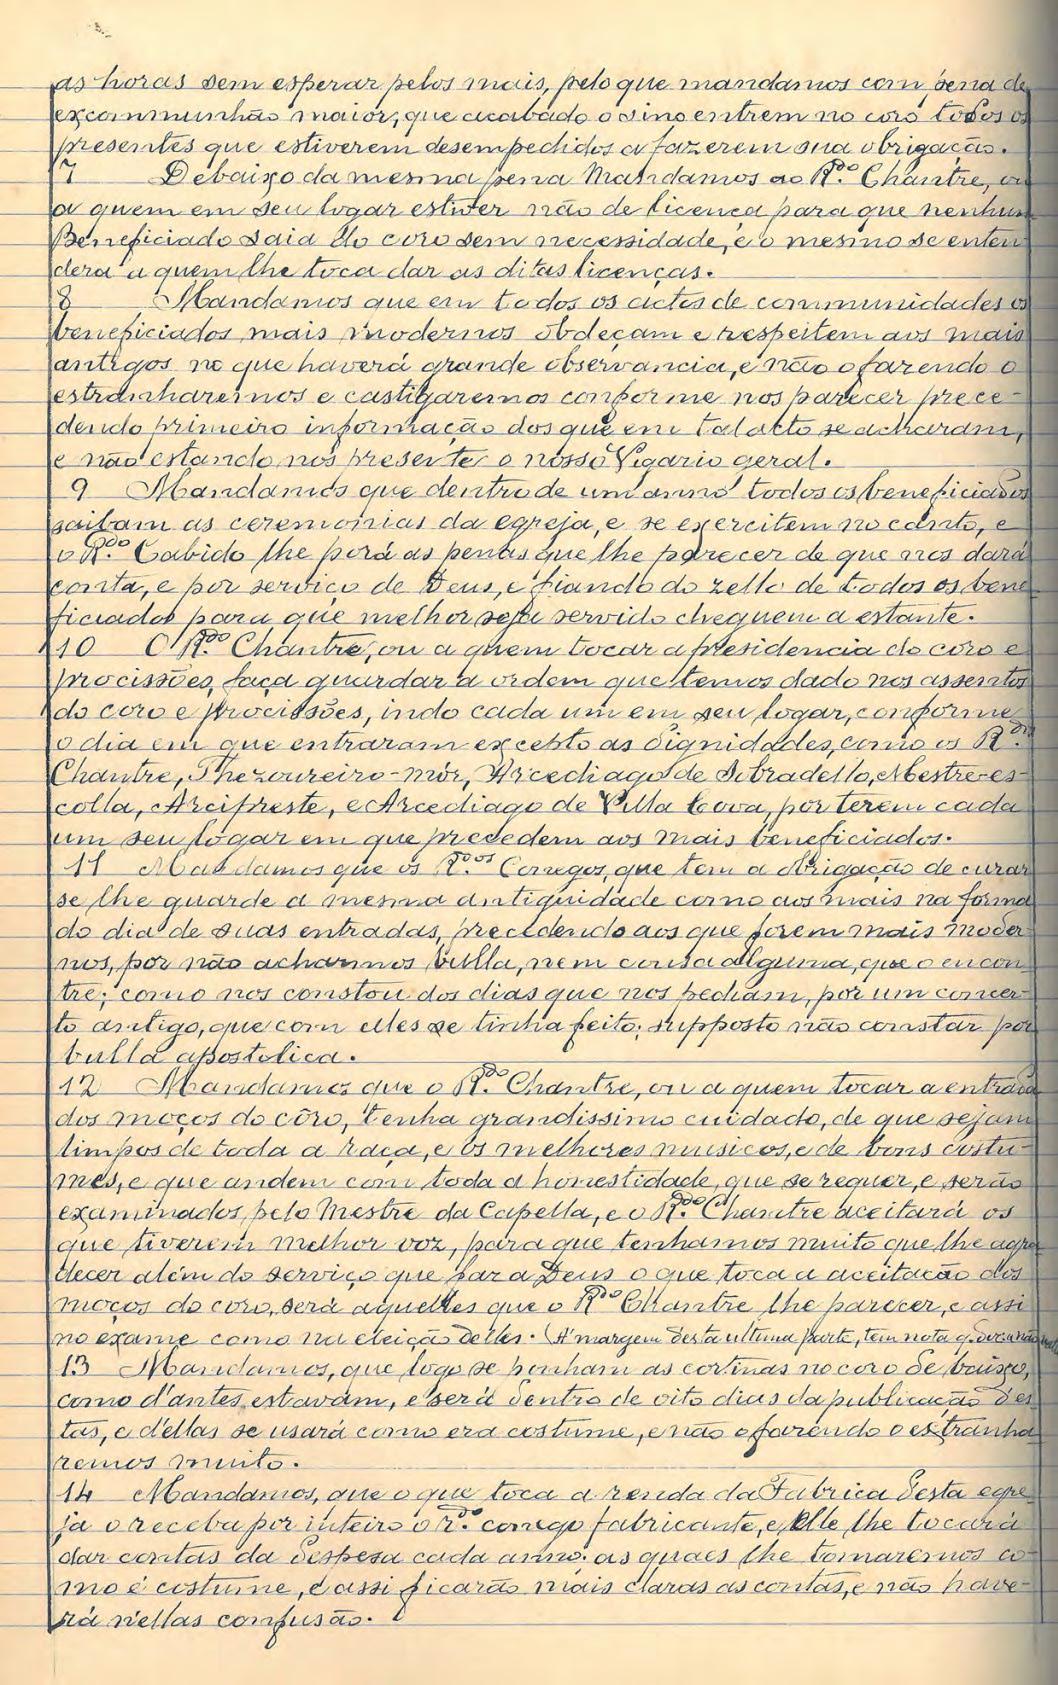 as horas sem esperar pelos mais, pelo que mandamos com pena de
excommunhão maior, que acabado o sino entrem no coro todos os
presentes que estiverem desempedidos a fazerem sua obrigação.
7 Debaixo da mesma pena Mandamos ao R.do Chantre, ou
a quem em seu logar estiver não de licença para que nenhum
Beneficiado saia do coro sem necessidade, e o mesmo se enten
dera a quem lhe toca dar as ditas licenças.
8 Mandamos que em todos os actos de communidades os
beneficiados mais modernos obdeçam e respeitem aos mais
antigos no que haverá grande observancia, e não o fazendo o
estranharemos e castigaremos conforme nos parecer prece-
dendo primeiro informação dos que em tal acto se acharam,
e não estando nós presente o nosso Vigario geral.
9 Mandamos que dentro de um anno todos os beneficiados
saibam as ceremonias da egreja, e se exercitem no canto, e
o R.do Cabido lhe porá as penas que lhe parecer de que nos dará
conta, e por serviço de Deus, e fiando do zello de todos os bene
ficiados para que melhor seja servido cheguem a estante.
10 O R.do Chantre, ou a quem tocar a presidencia do coro e
procissões, faça guardar a ordem que temos dado nos assentos
do coro e procissões, indo cada um em seu logar, conforme
o dia em que entraram excepto as Dignidades, como os R.dos
Chantre, Thezoureiro-mór, Arcediago de Sobradello, Mestre-es-
colla, Arcipreste, e Arcediago de Villa Cova, por terem cada
um seu logar em que precedem aos mais beneficiados.
11 Mandamos que os R.dos Conegos, que tem a obrigação de curar
se lhe guarde a mesma antiguidade como aos mais na forma
do dia de suas entradas, precedendo aos que forem mais moder
nos, por não acharmos bulla, nem cousa alguma, que o encon
tre; como nos constou dos dias que nos pediam, por um concer-
to antigo, que com elles se tinha feito; supposto não constar por
bulla apostolica.
12 Mandamos que o R.do Chantre, ou a quem tocar a entrada
dos moços do côro, tenha grandissimo cuidado, de que sejam
limpos de toda a raça, e os melhores musicos, e de bons costu-
mes, e que andem com toda a honestidade, que se requer, e serão
examinados pelo Mestre da Capella, e o R.do Chantre aceitará os
que tiverem melhor voz, para que tenhamos muito que lhe agra
decer além do serviço que fara a Deus o que toca a aceitação dos
moços do coro, será aquelles que o R.do Chantre lhe parecer, e assi
no exame como na eleição delles. (Á margem desta ultima parte, tem nota q.
13 Mandamos, que logo se ponham as cortinas no coro de baixo,
como d'antes estavam, e será dentro de oito dias da publicação des
tas, e d'ellas se usará como era costume, e não o fazendo o estranha
remos muito.
14 Mandamos, que o que toca a renda da Fabrica desta egre
ja o receba por inteiro o R.do conego fabricante, e elle lhe tocará
dar contas da despesa cada anno; as quaes lhe tomaremos co-
mo é costume, e assi ficarão mais claras as contas, e não have-
rá n'ellas confusão.